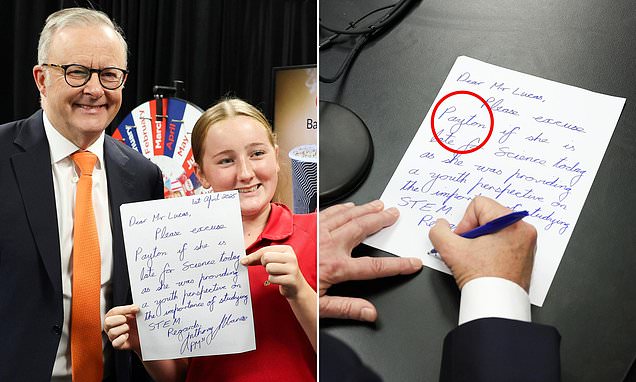 February
March
April
Ba
1st April 2025
Dear Mr Lucas,
Please excuse
Payton if she is
late for Science today
as she was providing
a youth perspective on
the importance of studying
STEM
Regards,
Anthony Albanese
"PM"
Dear Mr Lucas,
Please excuse
Payton if she is
late for Science today
as she was providing
a youth perspective on
the importance of studying
STEM
Regards